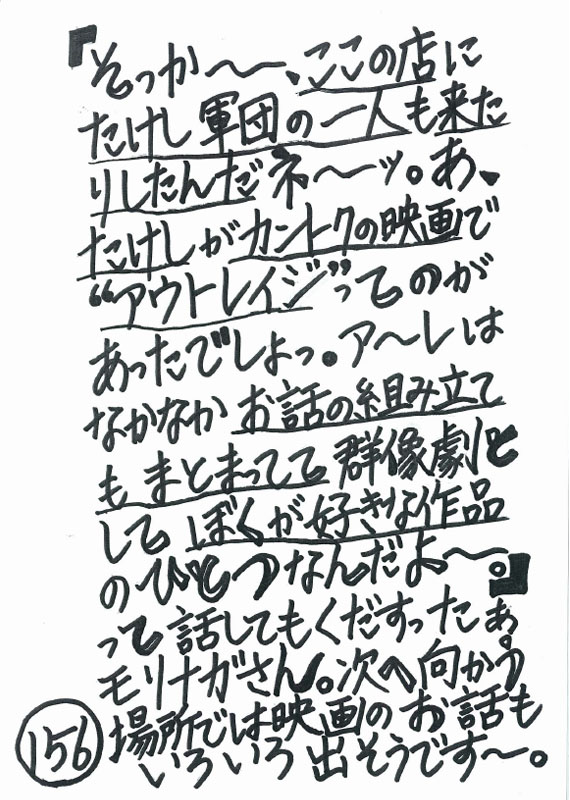 『そっか〜〜、ここの店に
たけし軍団の一人も来た
りしたんだネ〜〜ッ。あ、
たけしがカントクの映画で
“アウトレイジ”ってのが
あったでしょっ。ア〜レは
なかなかお話の組み立て
もまとまってて群像劇と
してぼくが好きな作品
のひとつなんだよ〜〜。』
って話してもくだすったぁ
モリナガさん。次へ向かう
場所では映画のお話も
いろいろ出そうです〜。
156